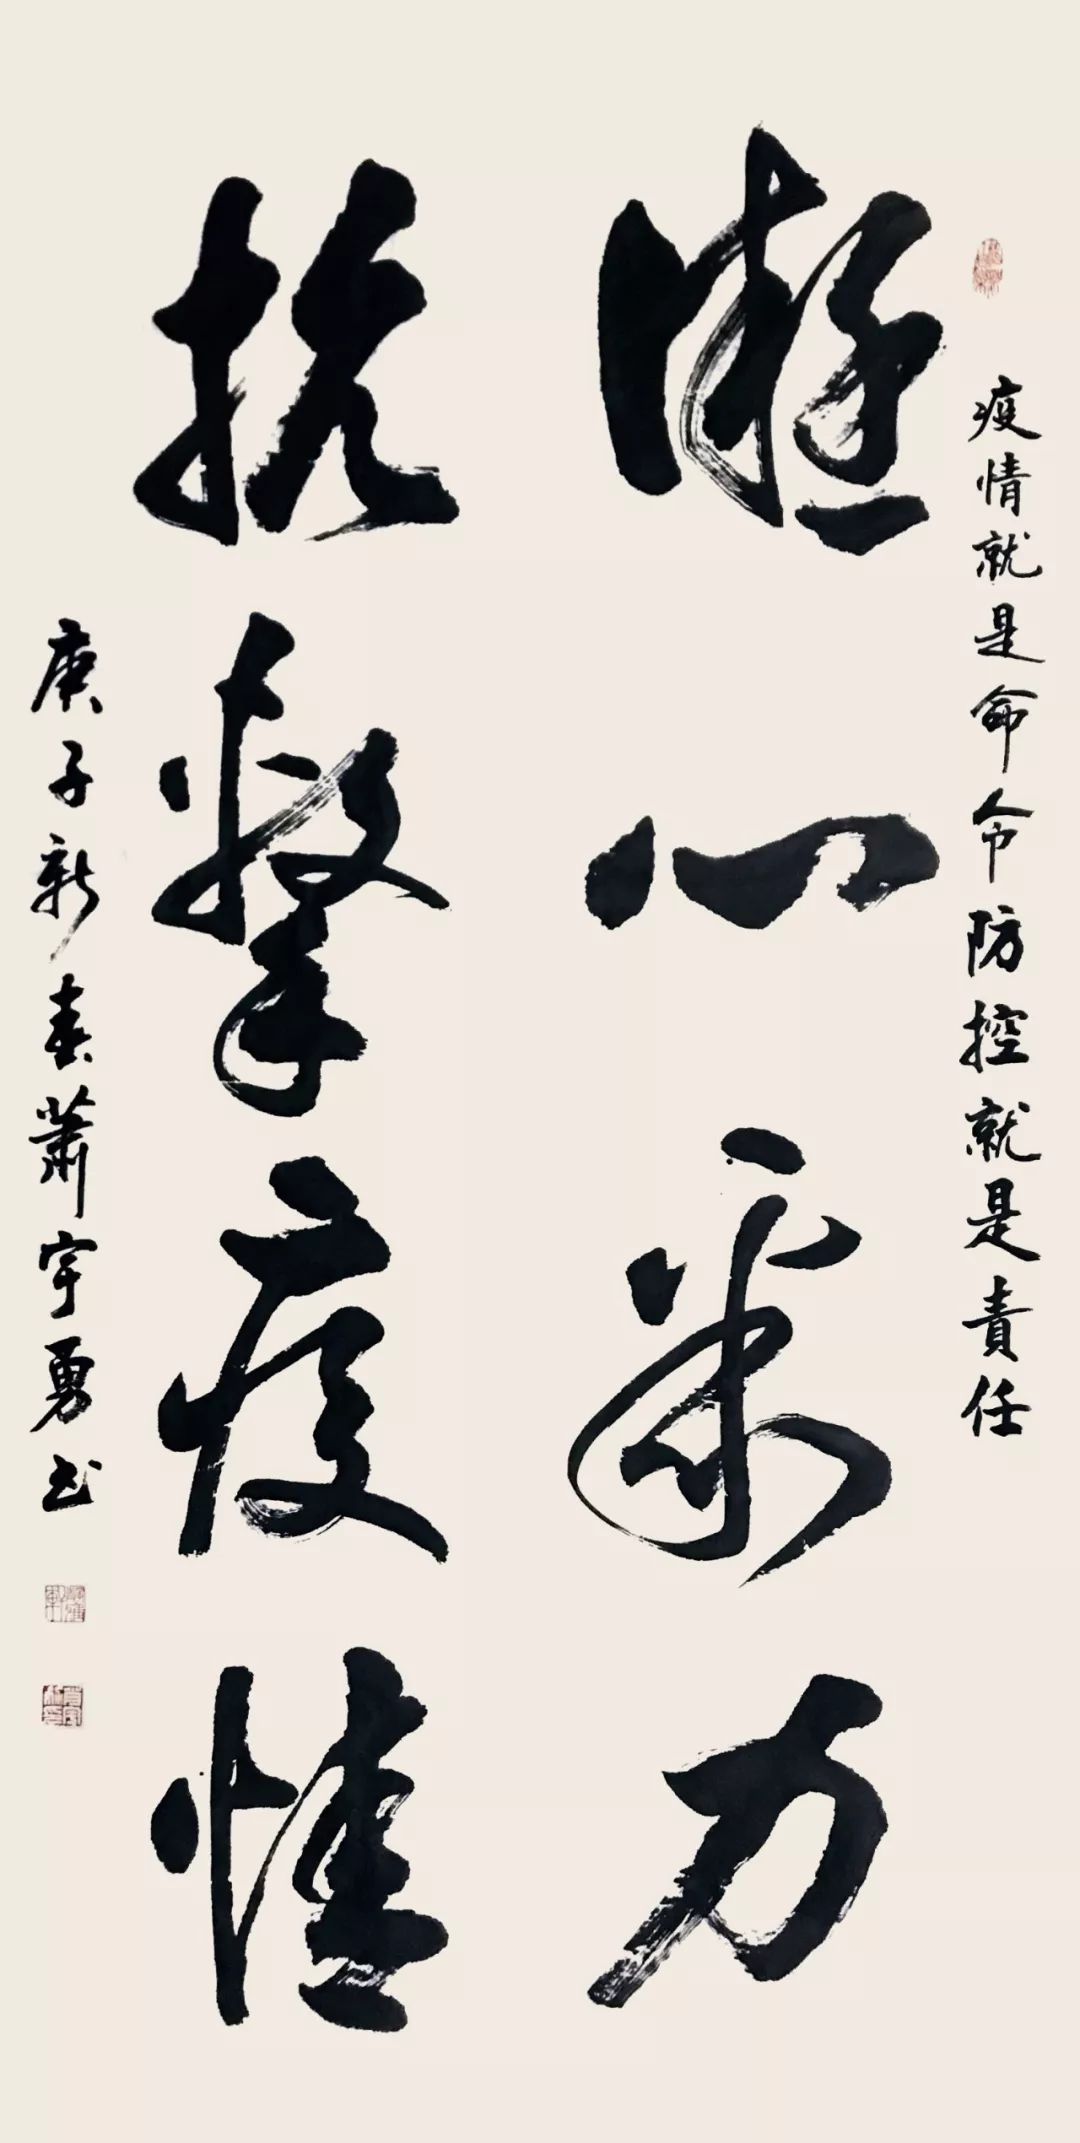 疫情就是命令防控就是責任
凝心聚力
抗擊疫情
庚子新春蕭宇勇书